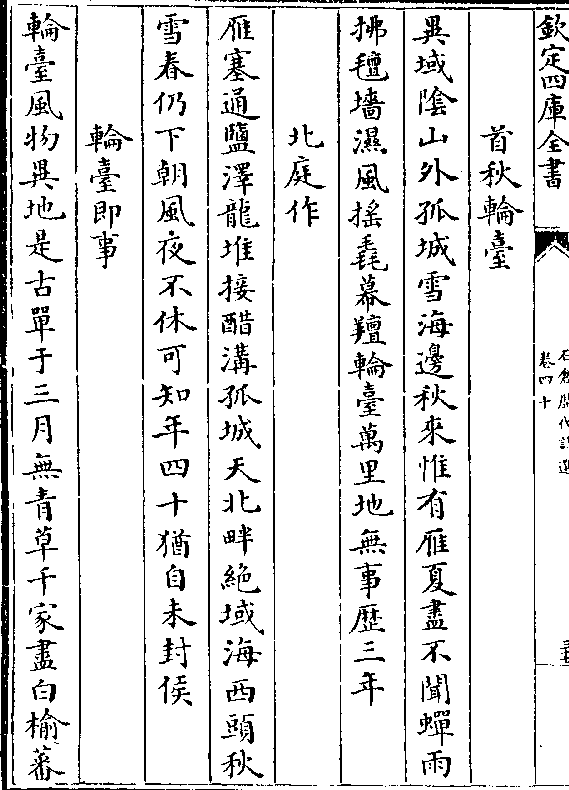 欽定四庫全書
石倉歴代詩選
卷四十
首秋輪臺
異域陰山外孤城雪海邊秋來惟有雁夏盡不聞蟬雨
拂氊墻濕風摇毳幕羶輪臺萬里地無事歴三年
北庭作
雁塞通鹽澤龍堆接醋溝孤城天北畔絶域海西頭秋
雪春仍下朝風夜不休可知年四十猶自未封侯
輪臺即事
輪臺風物異地是古單于三月無青草千家盡白榆蕃